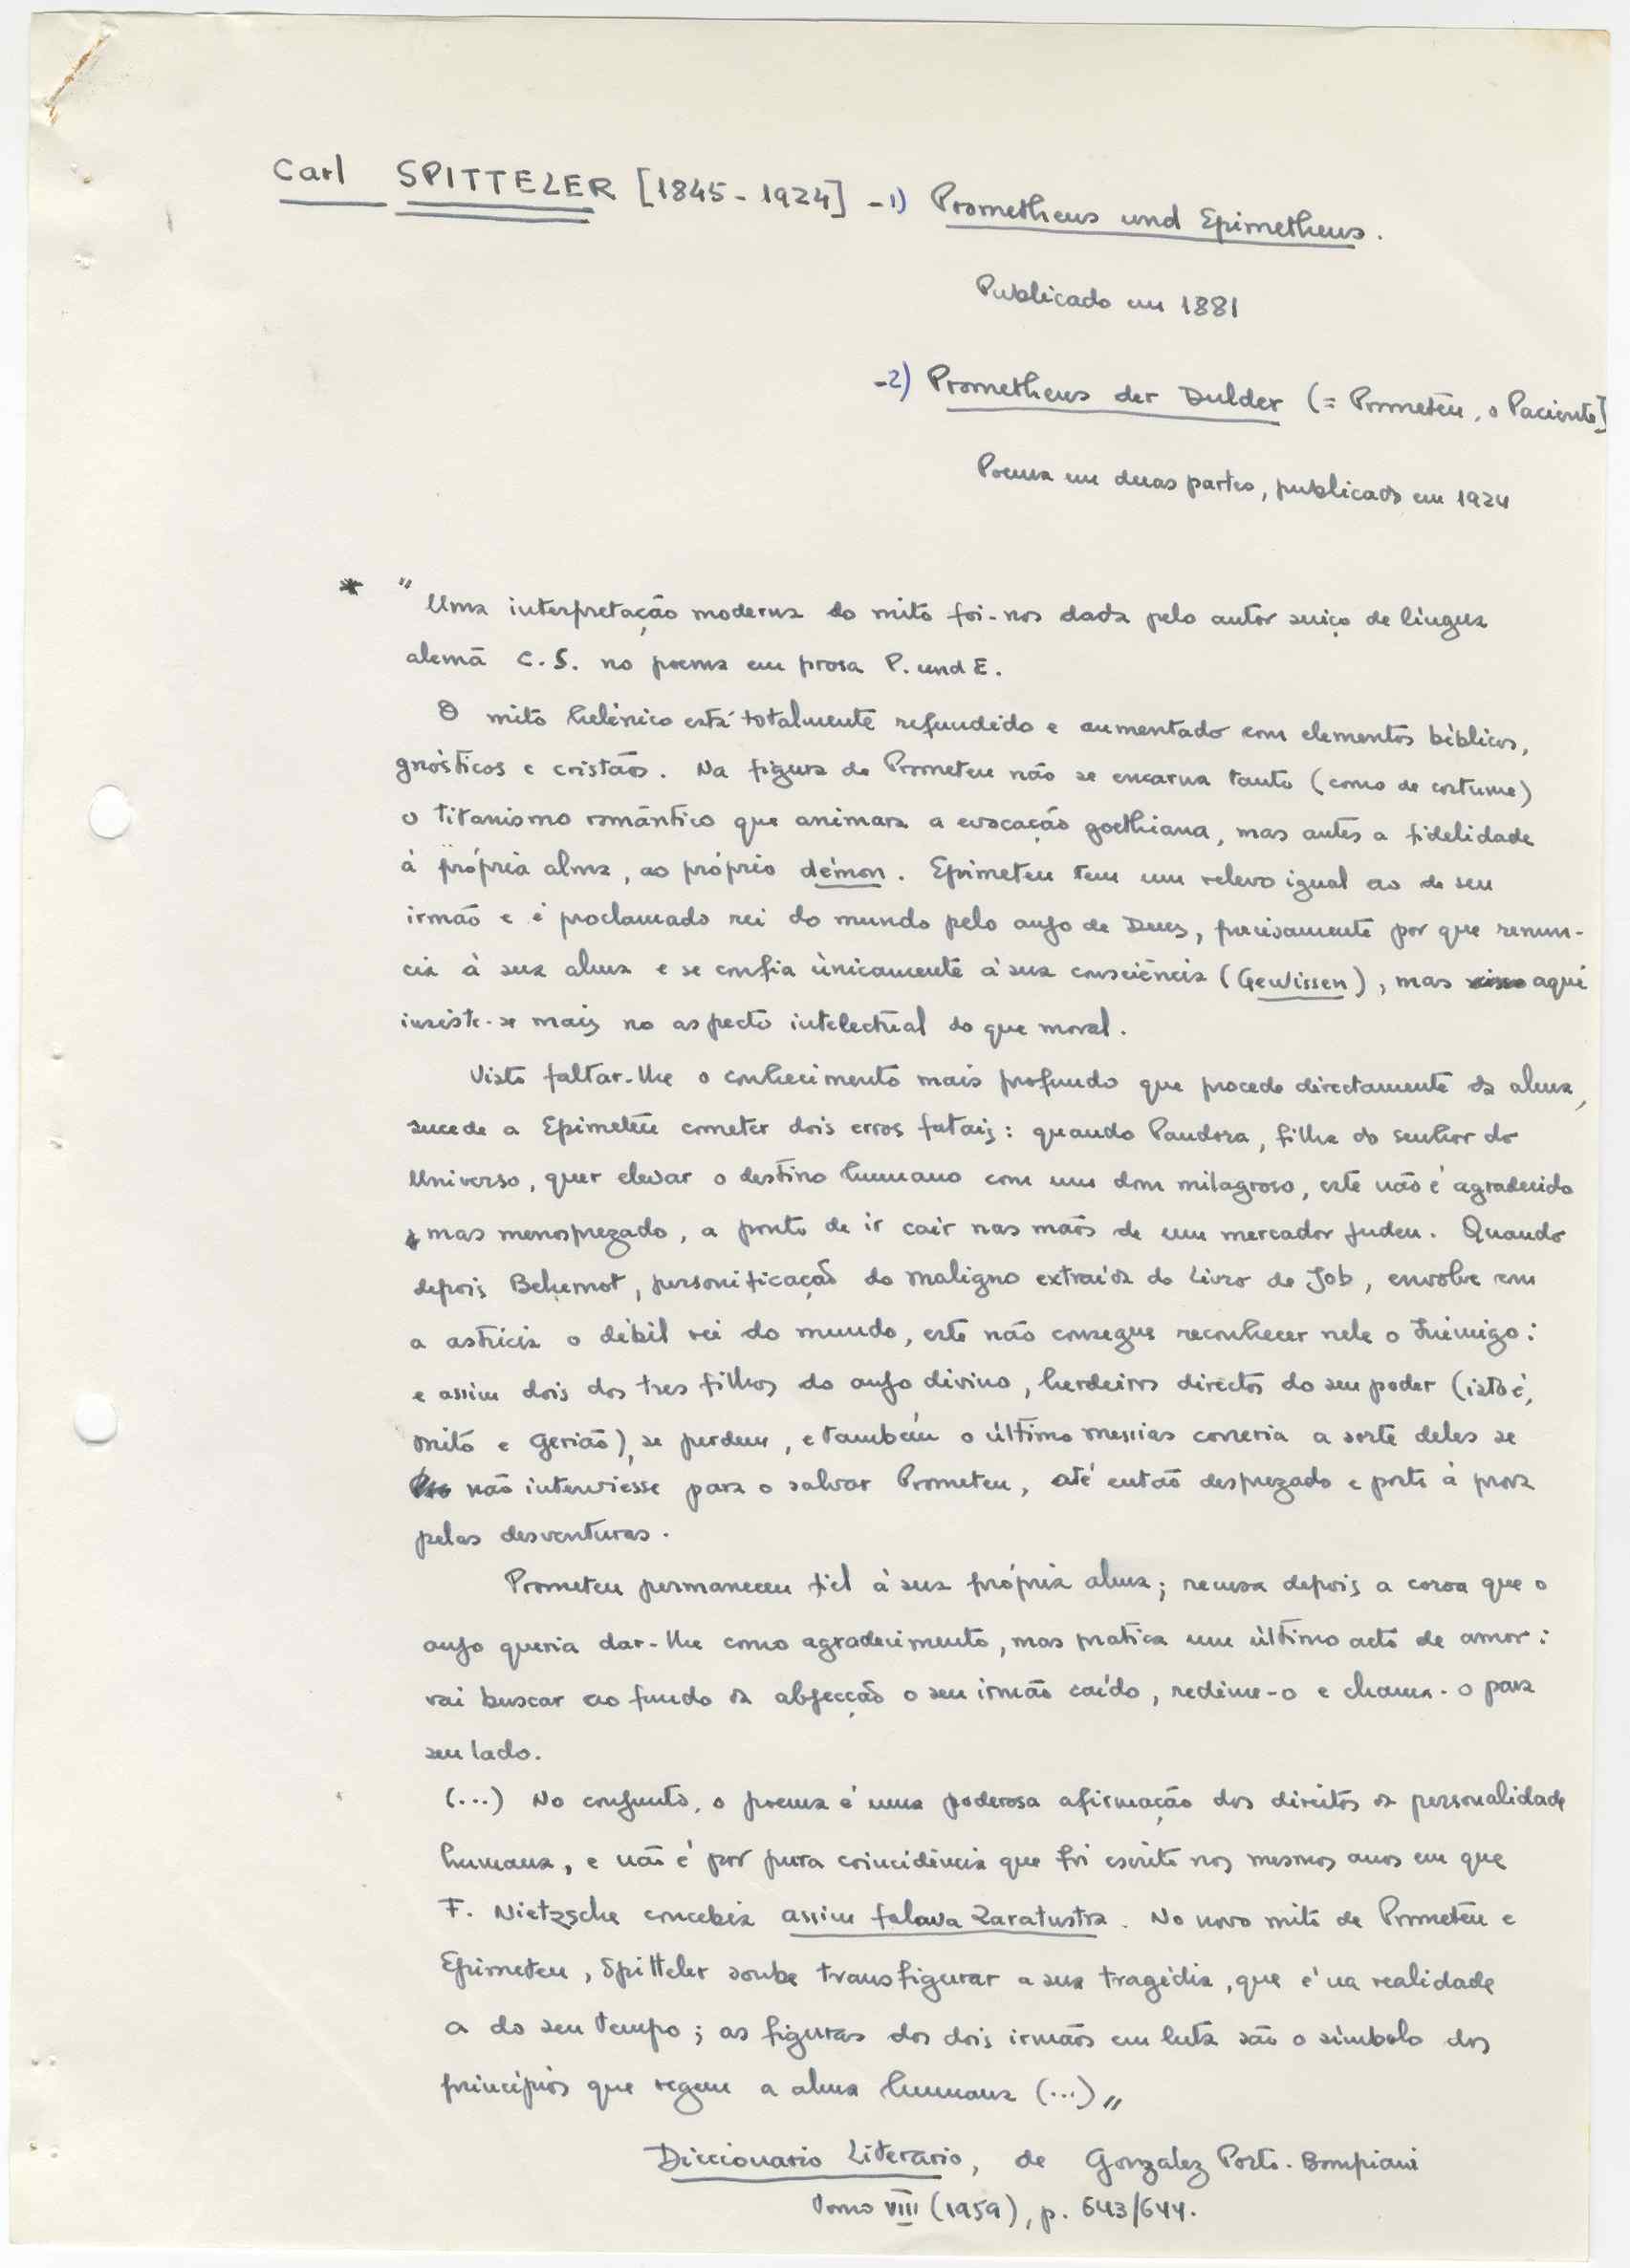 Carl SPITTELER [1845-1924] -1) Prometheus und Epimetheus.
Publicado em 1881
-2) Prometheus der Dulder (= Prometeu, o Paciente]
Poema em duas partes, publicado em 1924
* "Uma interpretação moderna do mito foi-nos dada pelo autor suiço de língua
alemã C.S. no poema em prosa P. und E.
O mito helénico está totalmente refundido e aumentado com elementos bíblicos,
gnósticos e cristãos. Na figura de Prometeu não se encarna tanto (como de costume)
o titanismo romântico que animara a evocação goethiana, mas antes a fidelidade
à própria alma, ao próprio démon. Epimeteu tem um relevo igual ao de seu
irmão e é proclamado rei do mundo pelo anjo de Deus, precisamente por que renun-
cia à sua alma e se confia ùnicamente à sua consciência (Gewissen), mas aqui
insiste-se mais no aspecto intelectual do que moral.
Visto faltar-lhe o conhecimento mais profundo que procede directamente da alma,
sucede a Epimeteu cometer dois erros fatais: quando Pandora, filha do senhor do
Universo, quer elevar o destino humano com um dom milagroso, este não é agradecido
mas menosprezado, a ponto de ir cair nas mãos de um mercador judeu. Quando
depois Behemot, personificação do maligno extraída do Livro de Job, envolve com
a astúcia o débil rei do mundo, este não consegue reconhecer nele o Inimigo:
e assim dois dos tres filhos do anjo divino, herdeiros directos do seu poder (isto é,
Mito e Gerião), se perdem, e também o último messias correria a sorte deles se
não interviesse para o salvar Prometeu, até então desprezado e posto à prova
pelas desventuras.
Prometeu permaneceu fiel à sua própria alma; recusa depois a coroa que o
anjo queria dar-lhe como agradecimento, mas pratica um último acto de amor:
vai buscar ao fundo da abjecção o seu irmão caído, redime-o e chama-o para
seu lado.
(...) No conjunto, o poema é uma poderosa afirmação dos direitos da personalidade
humana, e não é por pura coincidência que foi escrito nos mesmos anos em que
F. Nietzsche concebia assim falava Zaratustra. No novo mito de Prometeu e
Epimeteu, Spitteler soube transfigurar a sua tragédia, que é na realidade
a do seu tempo; as figuras dos dois irmãos em luta são o símbolo dos
princípios que regem a alma humana (...)"
Diccionario Literario, de Gonzalez Porto-Bompiani
Tomo VIII (1959), p. 643/644.